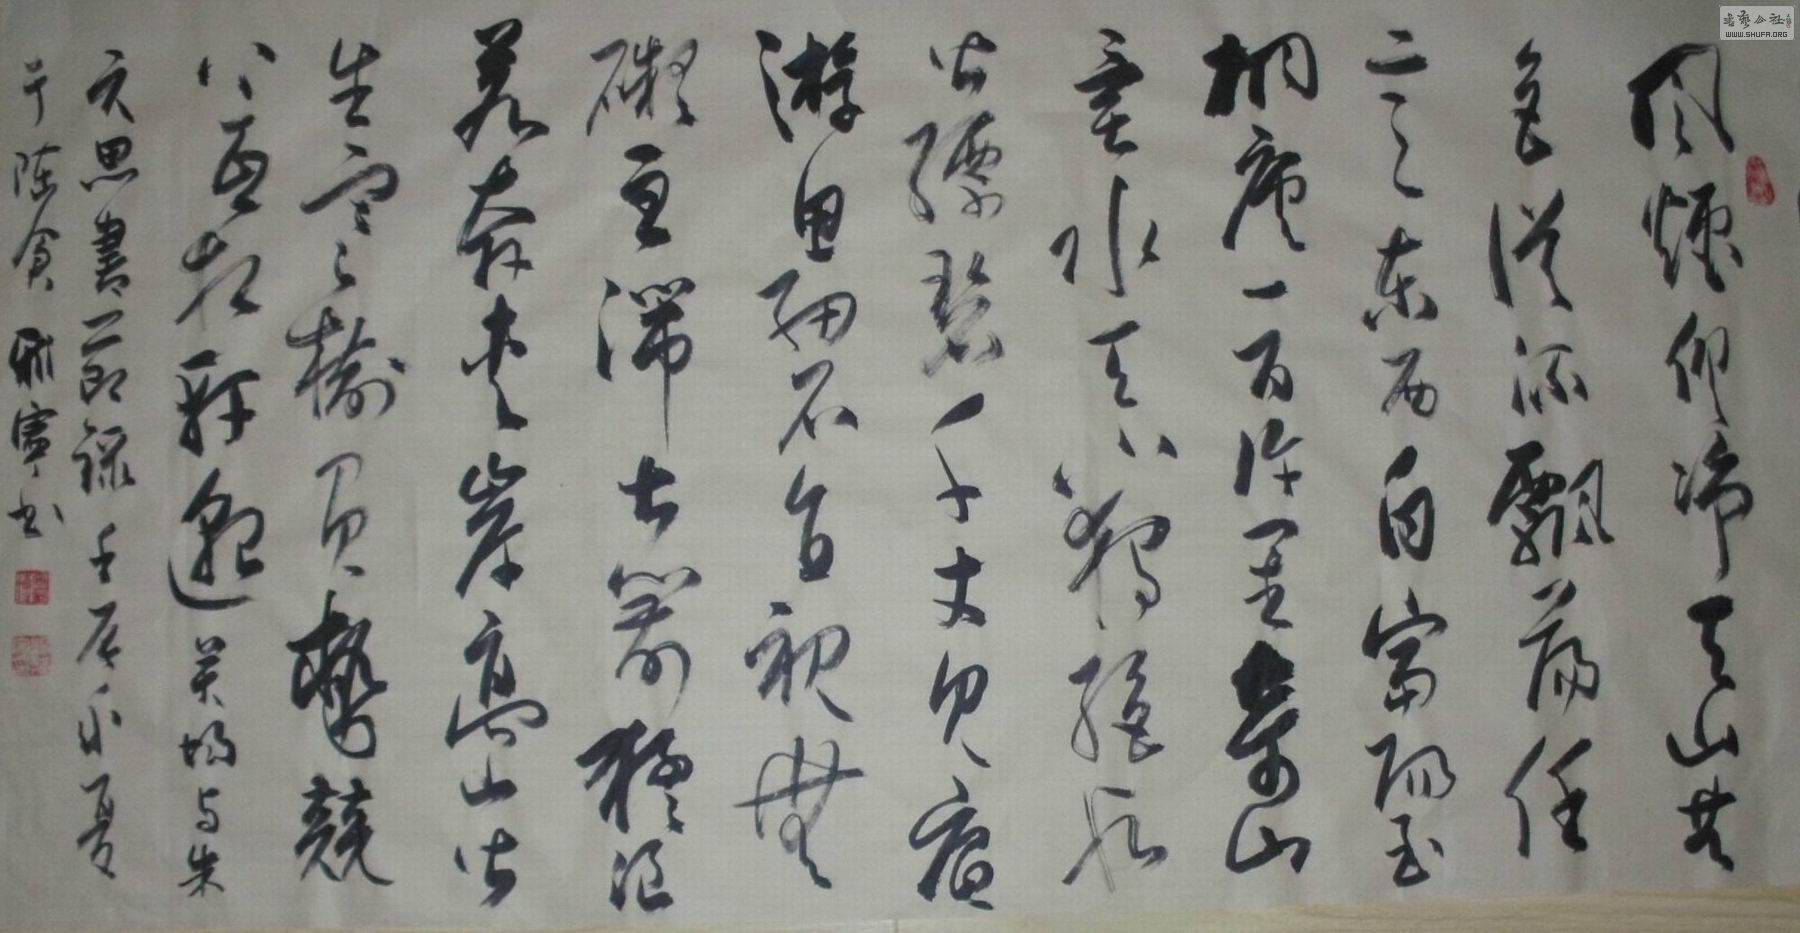 書藝公社
WWW.SHUFA.ORG
風煙俱淨天山共
色從流飄蕩任
意東西自富陽至
桐廬一百許里奇山
異水天下獨絕水
皆縹碧千丈見底
游魚細石直視無
礙急湍甚箭猛浪
若奔夾岸高山皆
生寒樹負勢競
上互相軒邈吴均与朱
元思書節錄壬辰夏
于陳倉书